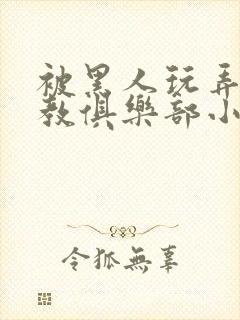 被黑人玩弄
教俱樂部小
令狐無辜